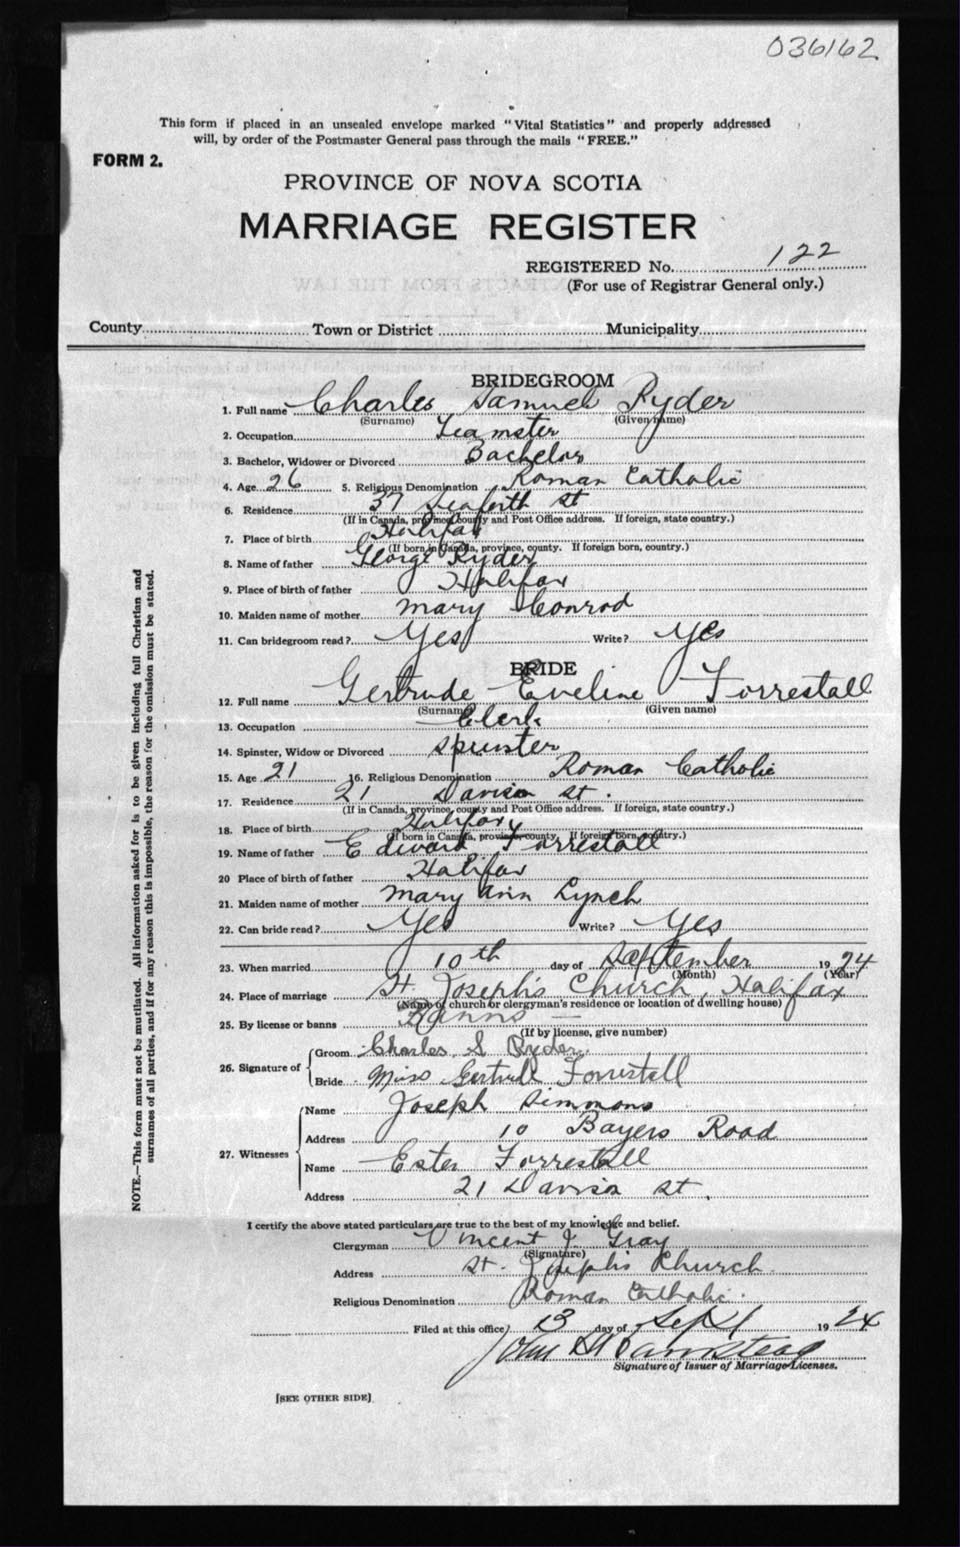 036162
This form if placed in an unsealed envelope marked "Vital Statistics" and properly addressed
will, by order of the Postmaster General pass through the mails "FREE."
FORM 2.
PROVINCE OF NOVA SCOTIA
MARRIAGE REGISTER
REGISTERED No. 122
(For use of Registrar General only.)
County Town or District Municipality
BRIDEGROOM
1. Full name Charles Samuel Ryder
(Surname) (Given name)
2. Occupation Teamster
3. Bachelor, Widower or Divorced Bachelor
4. Age 26 5. Religious Denomination Roman Catholic
6. Residence 37 Seaforth St
(If in Canada, province, county and Post Office address. If foreign, state country.)
7. Place of birth Halifax
(If born in Canada, province, county. If foreign born, country.)
8. Name of father George Ryder
9. Place of birth of father Halifax
10. Maiden name of mother Mary Conrod
11. Can bridegroom read? Yes Write? Yes
BRIDE
12. Full name Gertrude Eveline Forrestall
(Surname) (Given name)
13. Occupation Clerk
14. Spinster, Widow or Divorced Spinster
15. Age 21 16. Religious Denomination Roman Catholic
17. Residence 21 Davison St.
(If in Canada, province, county and Post Office address. If foreign, state country.)
18. Place of birth Halifax
(If born in Canada, province, county. If foreign born, country.)
19. Name of father Edward Forrestall
20 Place of birth of father Halifax
21. Maiden name of mother Mary Ann Lynch
22. Can bride read? Yes Write? Yes
23. When married 10th day of September 1924
(Month) (Year)
24. Place of marriage St. Joseph's Church, Halifax
(Name of church or clergyman's residence or location of dwelling house)
25. By license or banns Banns —
(If by license, give number)
26. Signature of Groom Charles S Ryder.
Bride Miss Gertrude Forrestall
27. Witnesses Name Joseph Simmons
Address 10 Bayers Road
Name Ester Forrestall
Address 21 Davison St.
I certify the above stated particulars are true to the best of my knowledge and belief.
Clergyman Vincent J. Gray
(Signature)
Address St. Joseph's Church.
Religious Denomination Roman Catholic.
Filed at this office 13 day of Sept 1924
John
Signature of Issuer of Marriage Licenses.
[SEE OTHER SIDE]
NOTE.—This form must not be mutilated. All information asked for is to be given including full Christian and
surnames of all parties, and if for any reason this is impossible, the reason for the omission must be stated.